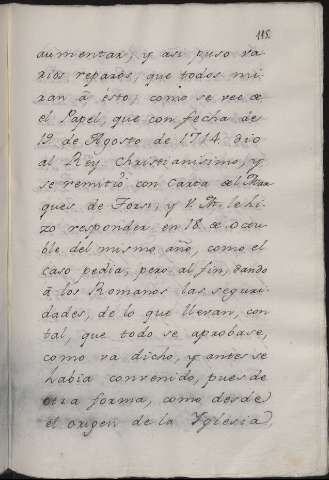 118.
aumentar, y asi puso va-
rios reparos, que todos mi-
ran â ésto, como se vee æ
el Papel, que con fecha de
19 de Agosto de 1714. dio
al Rey Christianisimo, y
se remitio con Carta æl Mar
ques de Torsi, y V. M. le hi-
zo responder en 18 æ octu-
bre del mismo año, como el
caso pedia, pero al fin, dando
â los Romanos las seguri-
dades, de lo que llevan, con
tal, que todo se aprobase,
como va dicho, y antes se
habia convenido, pues de
otra forma, como desde
el origen de la Yglesia